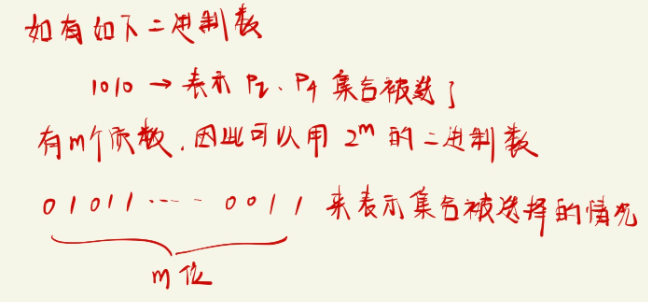 如有如下二进制数
1010 → 表示 P₂、P₄ 集合被选了
有m个质数,因此可以用 2ᵐ 的二进制数
01011 ‥‥ 0011 来表示集合被选择的情况
m 位